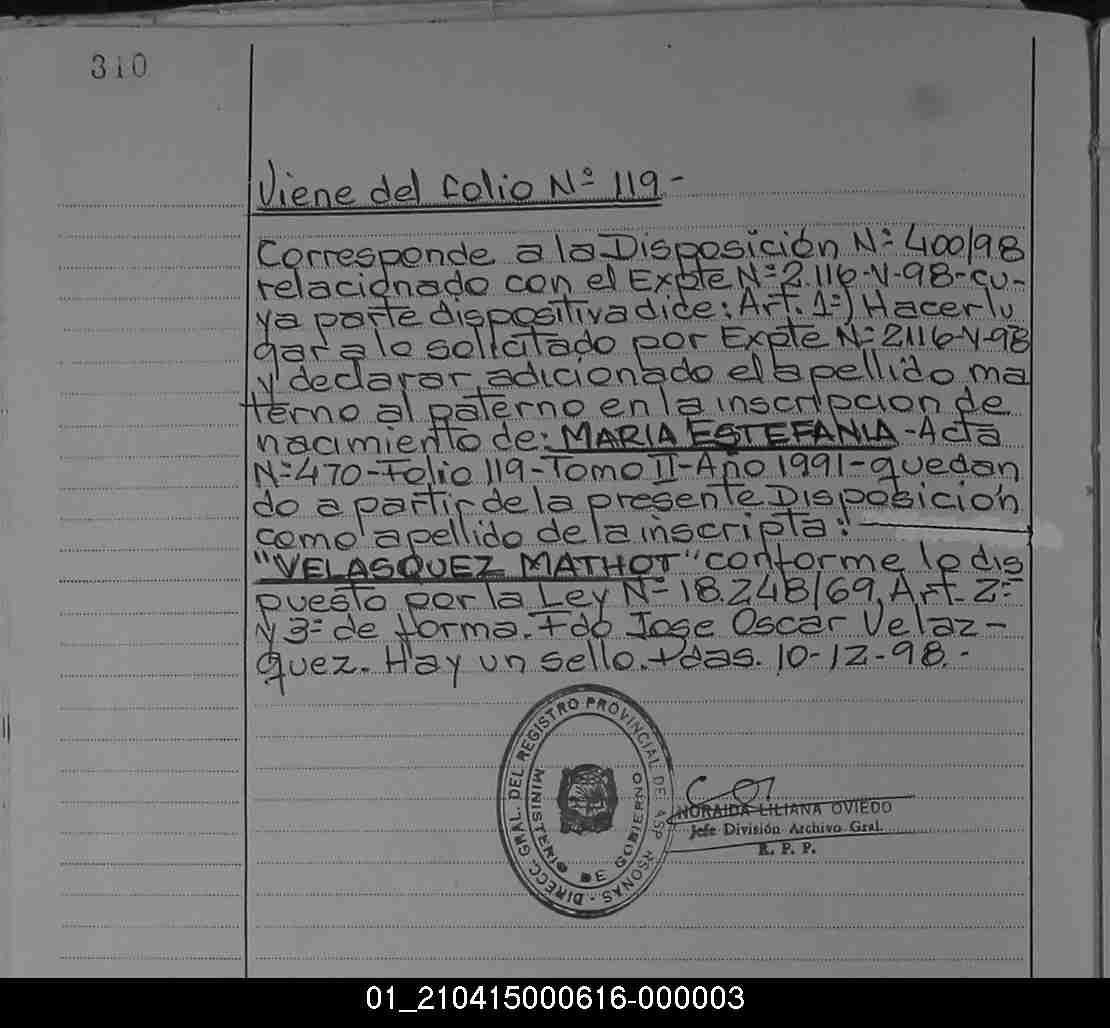 310
Viene del folio Nº 119-
Corresponde a la Disposición Nº 400/98
relacionado con el Expte Nº 2.116-V-98-cu-
ya parte dispositiva dice: Art. 1º) Hacer lu
gar a lo solicitado por Expte Nº 2116-V-98
y declarar adicionado el apellido ma
terno al paterno en la inscripcion de
nacimiento de: MARIA ESTEFANIA-Acta
Nº 470-Folio 119-Tomo II-Año 1991-quedan
do a partir de la presente Disposición
como apellido de la inscripta:
"VELASQUEZ MATHOT" conforme lo dis
puesto por la Ley Nº 18.248/69, Art. 2º
y 3º de forma. Fdo Jose Oscar Velaz-
quez. Hay un sello. Pdas. 10-12-98.-
DIRECC. GRAL. DEL REGISTRO PROVINCIAL DE LAS PERSONAS
MINISTERIO DE GOBIERNO
NORAIDA LILIANA OVIEDO
Jefe División Archivo Gral.
R. P. P.
01_210415000616-000003